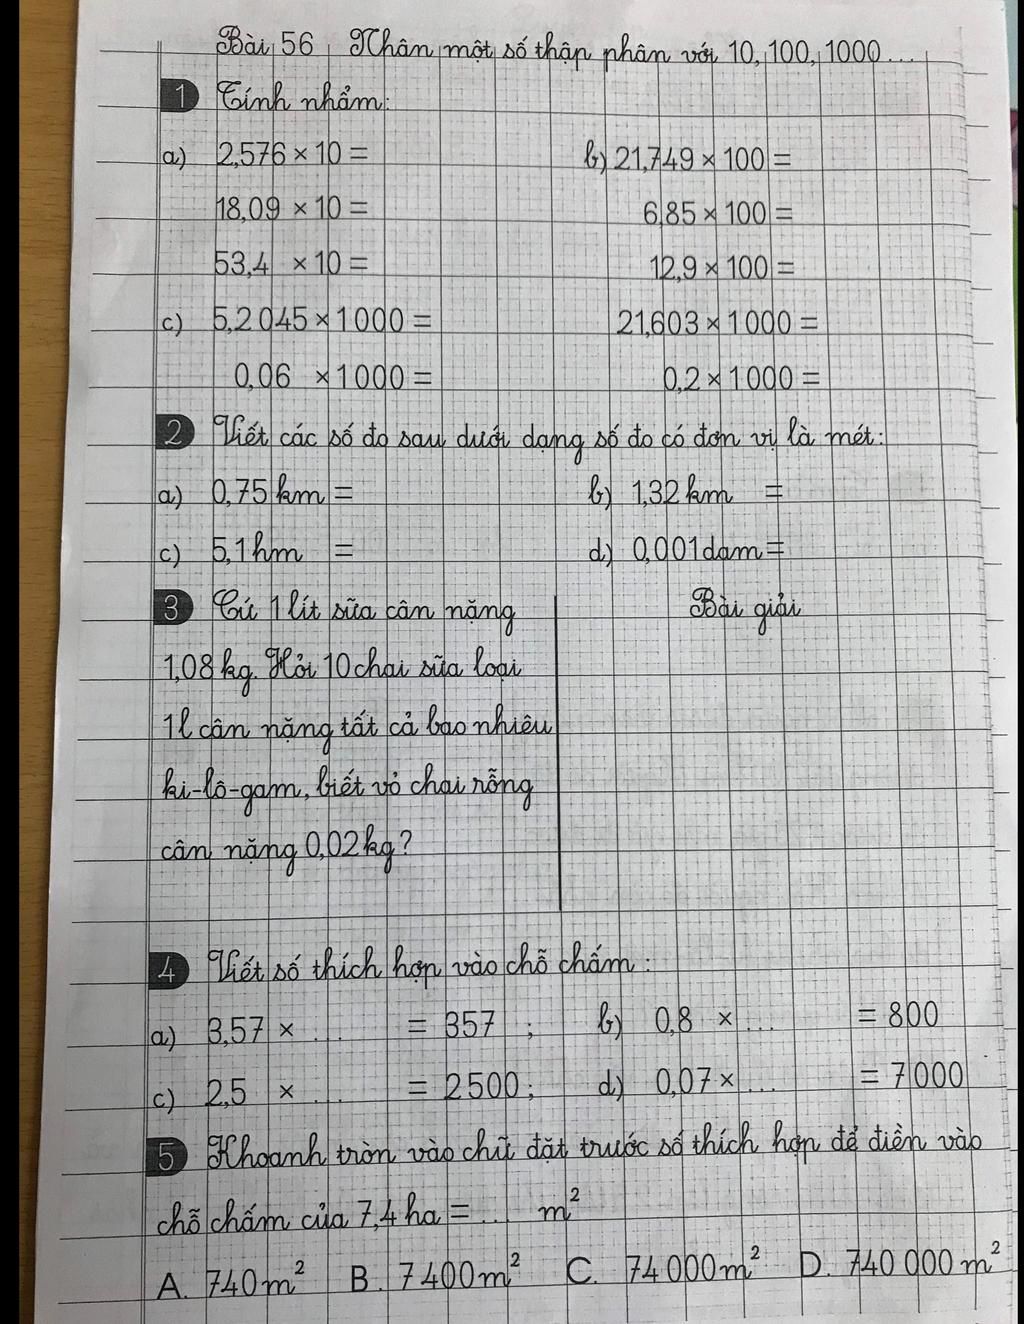 Bài 56 Nhân một số thập phân với 10, 100, 1000...
1 Tính nhẩm:
a) 2,576 × 10 = b) 21,749 × 100 =
18,09 × 10 = 6,85 × 100 =
53,4 × 10 = 12,9 × 100 =
c) 5,2045 × 1000 = 21,603 × 1000 =
0,06 × 1000 = 0,2 × 1000 =
2 Viết các số đo sau dưới dạng số đo có đơn vị là mét:
a) 0,75 km = b) 1,32 km =
c) 5,1 hm = d) 0,001 dam =
3 Cứ 1 lít sữa cân nặng
1,08 kg. Hỏi 10 chai sữa loại
1l cân nặng tất cả bao nhiêu
ki-lô-gam, biết vỏ chai rỗng
cân nặng 0,02 kg?
Bài giải
4 Viết số thích hợp vào chỗ chấm:
a) 3,57 × ... = 357 ; b) 0,8 × ... = 800
c) 2,5 × ... = 2500 ; d) 0,07 × ... = 7000
5 Khoanh tròn vào chữ đặt trước số thích hợp để điền vào
chỗ chấm của 7,4 ha = ... m²
A. 740 m² B. 7 400 m² C. 74 000 m² D. 740 000 m²